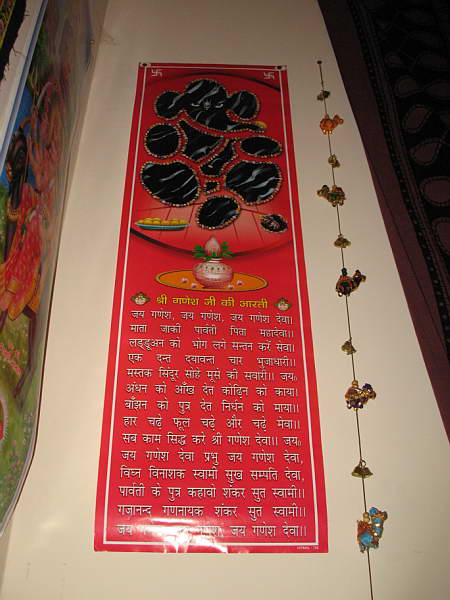 श्री गणेश जी की आरती
जय गणेश, जय गणेश, जय गणेश देवा।
माता जाकी पार्वती पिता महादेवा।।
लड्डुअन को भोग लगे सन्तन करें सेवा।
एक दन्त दयावन्त चार भुजाधारी।।
मस्तक सिंदूर सोहे मूसे की सवारी।। जय०
अंधन को आँख देत कोढ़िन को काया।
बाँझन को पुत्र देत निर्धन को माया।।
हार चढ़े फूल चढ़े और चढ़े मेवा।
सब काम सिद्ध करे श्री गणेश देवा।। जय०
जय गणेश देवा प्रभु जय गणेश देवा,
विघ्न विनाशक स्वामी सुख सम्पति देवा,
पार्वती के पुत्र कहावो शंकर सुत स्वामी।।
गजानन्द गणनायक शंकर सुत स्वामी।
जय जय गणेश देवा।।